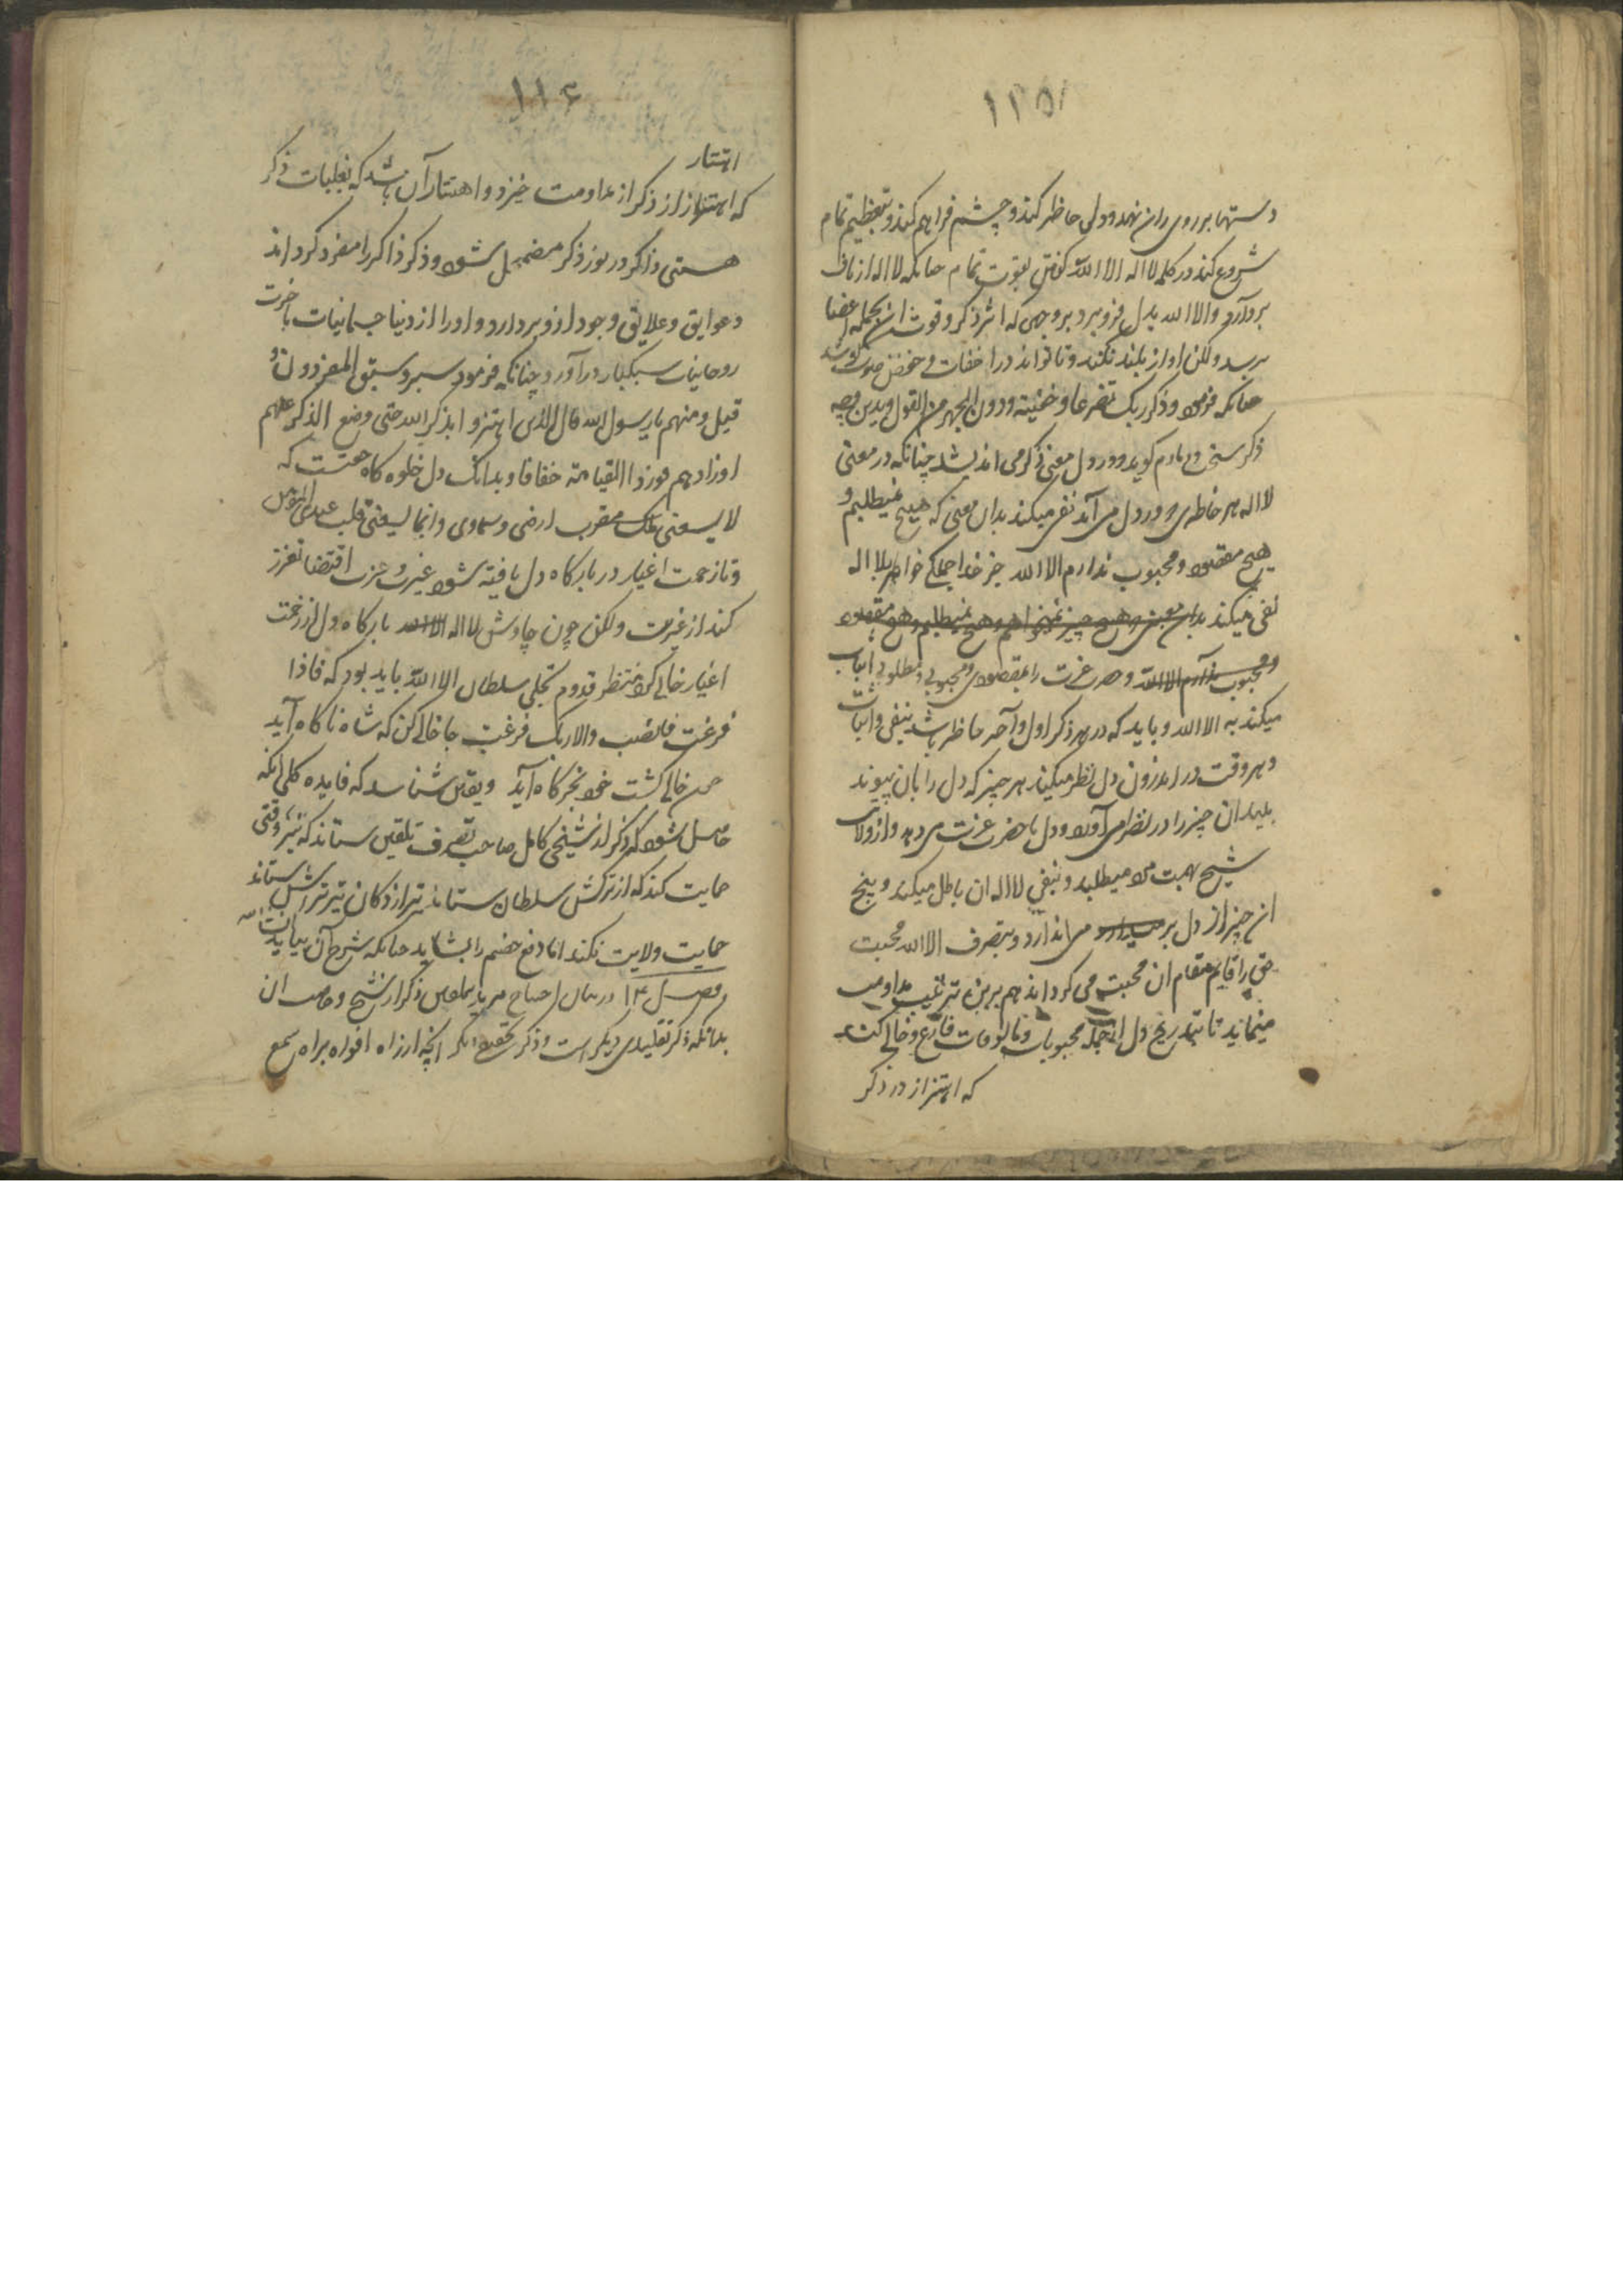 ۱۱۵
دستها بر روی ران نهد و دل حاظر کند و چشم فراهم کند و بتعظیم تمام
شروع کند در کلمه لا اله الا الله کفتن بقوت تمام چنانکه لا اله از ناف
بردآرد والا الله بدل فروبرد بر وجهی که اثر ذکر و قوت ان بجمله اعضا
برسد ولکن اواز بلند نکند و تا تواند در اخفات و خفض صوت کوشد
چنانکه فرمود وذکر ربک تضرعا وخفیته ودون الجهر من القول وبدین وجه
ذکر سخن و دمادم کوید و در دل معنی ذکر می اندیشد چنانکه در معنی
لا اله هر خاطر که در دل می آید نفی میکند بدان معنی که هیچ نمیطلبم و
هیچ مقصود ومحبوب ندارم الا الله جز خدا جملکی خواطر بلا اله
نفی میکند بدان معنی و هیچ چیز نمیخواهم و هیچ نمیطلبم و هیچ مقصود
ومحبوب ندارم الا الله وحضرت عزت را بمقصودی ومحبوبی ومطلوبی اثبات
میکند به الا الله و باید که در هر ذکر اول وآخر حاظر باشد بنفی واثبات
و هر وقت در اندرون دل نظر میکند هر چیز که دل را بان پیوند
بیند ان چیز را در نظر می آورد ودل با حضرت عزت می دهد واز ولایت
شیخ بهمت مدد میطلبد و بنفی لا اله ان باطل میکند و بیخ
ان چیز از دل بر میدارد می اندازد و بتصرف الا الله محبت
حق را قایم مقام ان محبت می کرداند هم برین ترتیب مداومت
مینماید تا بتدریج دل از جمله محبوبات ومالوفات فارغ وخالی کند
که اهتزاز در ذکر
۱۱۶
اهتتار
که اهتزاز از ذکر از مداومت خیزد و اهتتار آن باشد که بغلبات ذکر
هستی ذاکر در نور ذکر مضمحل شود و ذکر ذاکر را مفرد کرداند
وعوایق وعلایق وجود از وبردارد و اورا از دنیا جسمانیات باخرت
روحانیات سبکبار درآورد چنانکه فرمود سیروا سبق المفردون
قیل ومنهم یا رسول الله قال الذین اهتزوا بذکر الله حتی وضع الذکر عنهم
اوزارهم فوردوا القیامة خفافا و بدانک دل خلوه کاه حقست که
لا یسعنی ملک مقرب ارضی وسماوی وانما یسعنی قلب عبدی المؤمن
و تا زحمت اغیار در بارکاه دل یافته شود غیرت و عزت اقتضا تعزز
کند از غیریت ولکن چون چاوش لا اله الا الله بارکاه دل از زحمت
اغیار خالی کرد منتظر قدوم تجلی سلطان الا الله باید بود که فاذا
فرغت فانصب والا ربک فرغب جا خالی کن که شاه ناکاه آید
چون خالی کشت خود بخرکاه آید ویقین شناسد که فایده کلی انکه
حاصل شود که ذکر از شیخی کامل صاحب تصرف تلقین ستاند که تیر وقتی
حمایت کند که از ترکش سلطان ستاند تیر از دکان تیرتراش ستانند
حمایت ولایت نکند اما دفع خصم را بشاید چنانکه شرح آن بیاید
فصل ۱۴ در بیان احتیاج مرید بتلقین ذکر از شیخ وخاصیت ان
بدانکه ذکر تقلیدی دیکر است وذکر تحقیقی دیکر انچه از راه افواه براه سمع